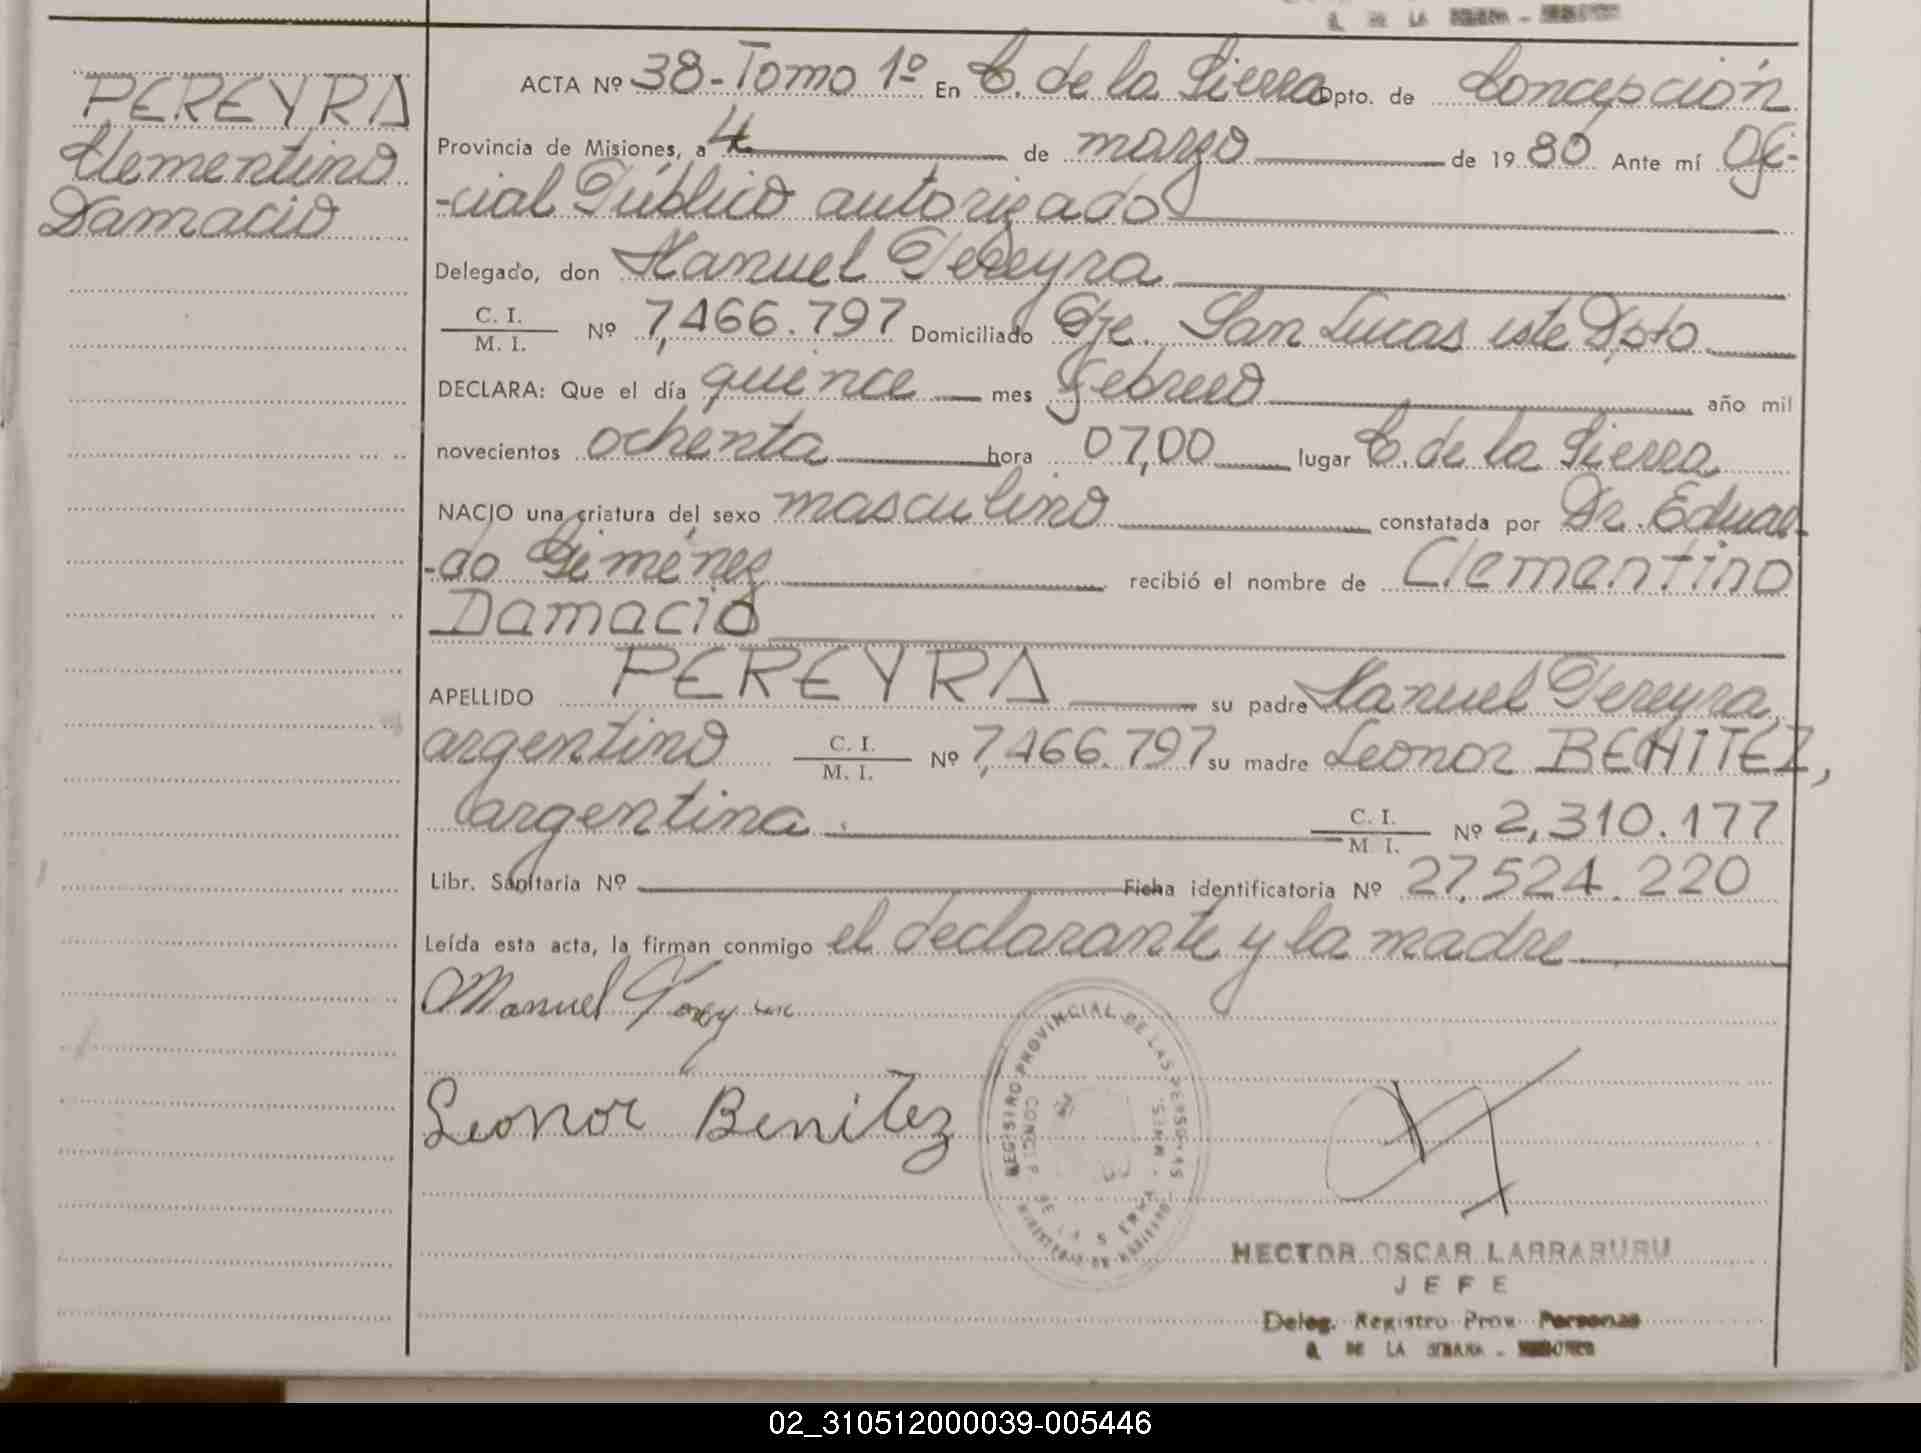 PEREYRA
Clementino
Damacio
DE LA
ACTA Nº 38-Tomo 1º En C. de la Sierra Dpto. de Concepción
Provincia de Misiones, a 4 de marzo de 1980 Ante mí Ofi-
-cial Público autorizado
Delegado, don Manuel Pereyra
C. I.
M. I. Nº 7,466.797 Domiciliado Pje. San Lucas este Dpto
DECLARA: Que el día quince mes febrero año mil
novecientos ochenta hora 07,00 lugar C. de la Sierra
NACIO una criatura del sexo masculino constatada por Dr. Eduar-
-do Giménez recibió el nombre de Clementino
Damacio
APELLIDO PEREYRA su padre Manuel Pereyra,
argentino C. I. M. I. Nº 7,466.797 su madre Leonor BENITEZ,
argentina. C. I. M. I. Nº 2,310.177
Libr. Sanitaria Nº Ficha identificatoria Nº 27,524.220
Leída esta acta, la firman conmigo el declarante y la madre
Manuel Pereyra
Leonor Benitez
REGISTRO PROVINCIAL DE LAS PERSONAS
CONCEP. DE LA SIERRA - MNES.
MINISTERIO DE GOBIERNO
HECTOR OSCAR LARRABURU
JEFE
Deleg. Registro Prov. Personas
DE LA SIERRA - MISIONES
02_310512000039-005446